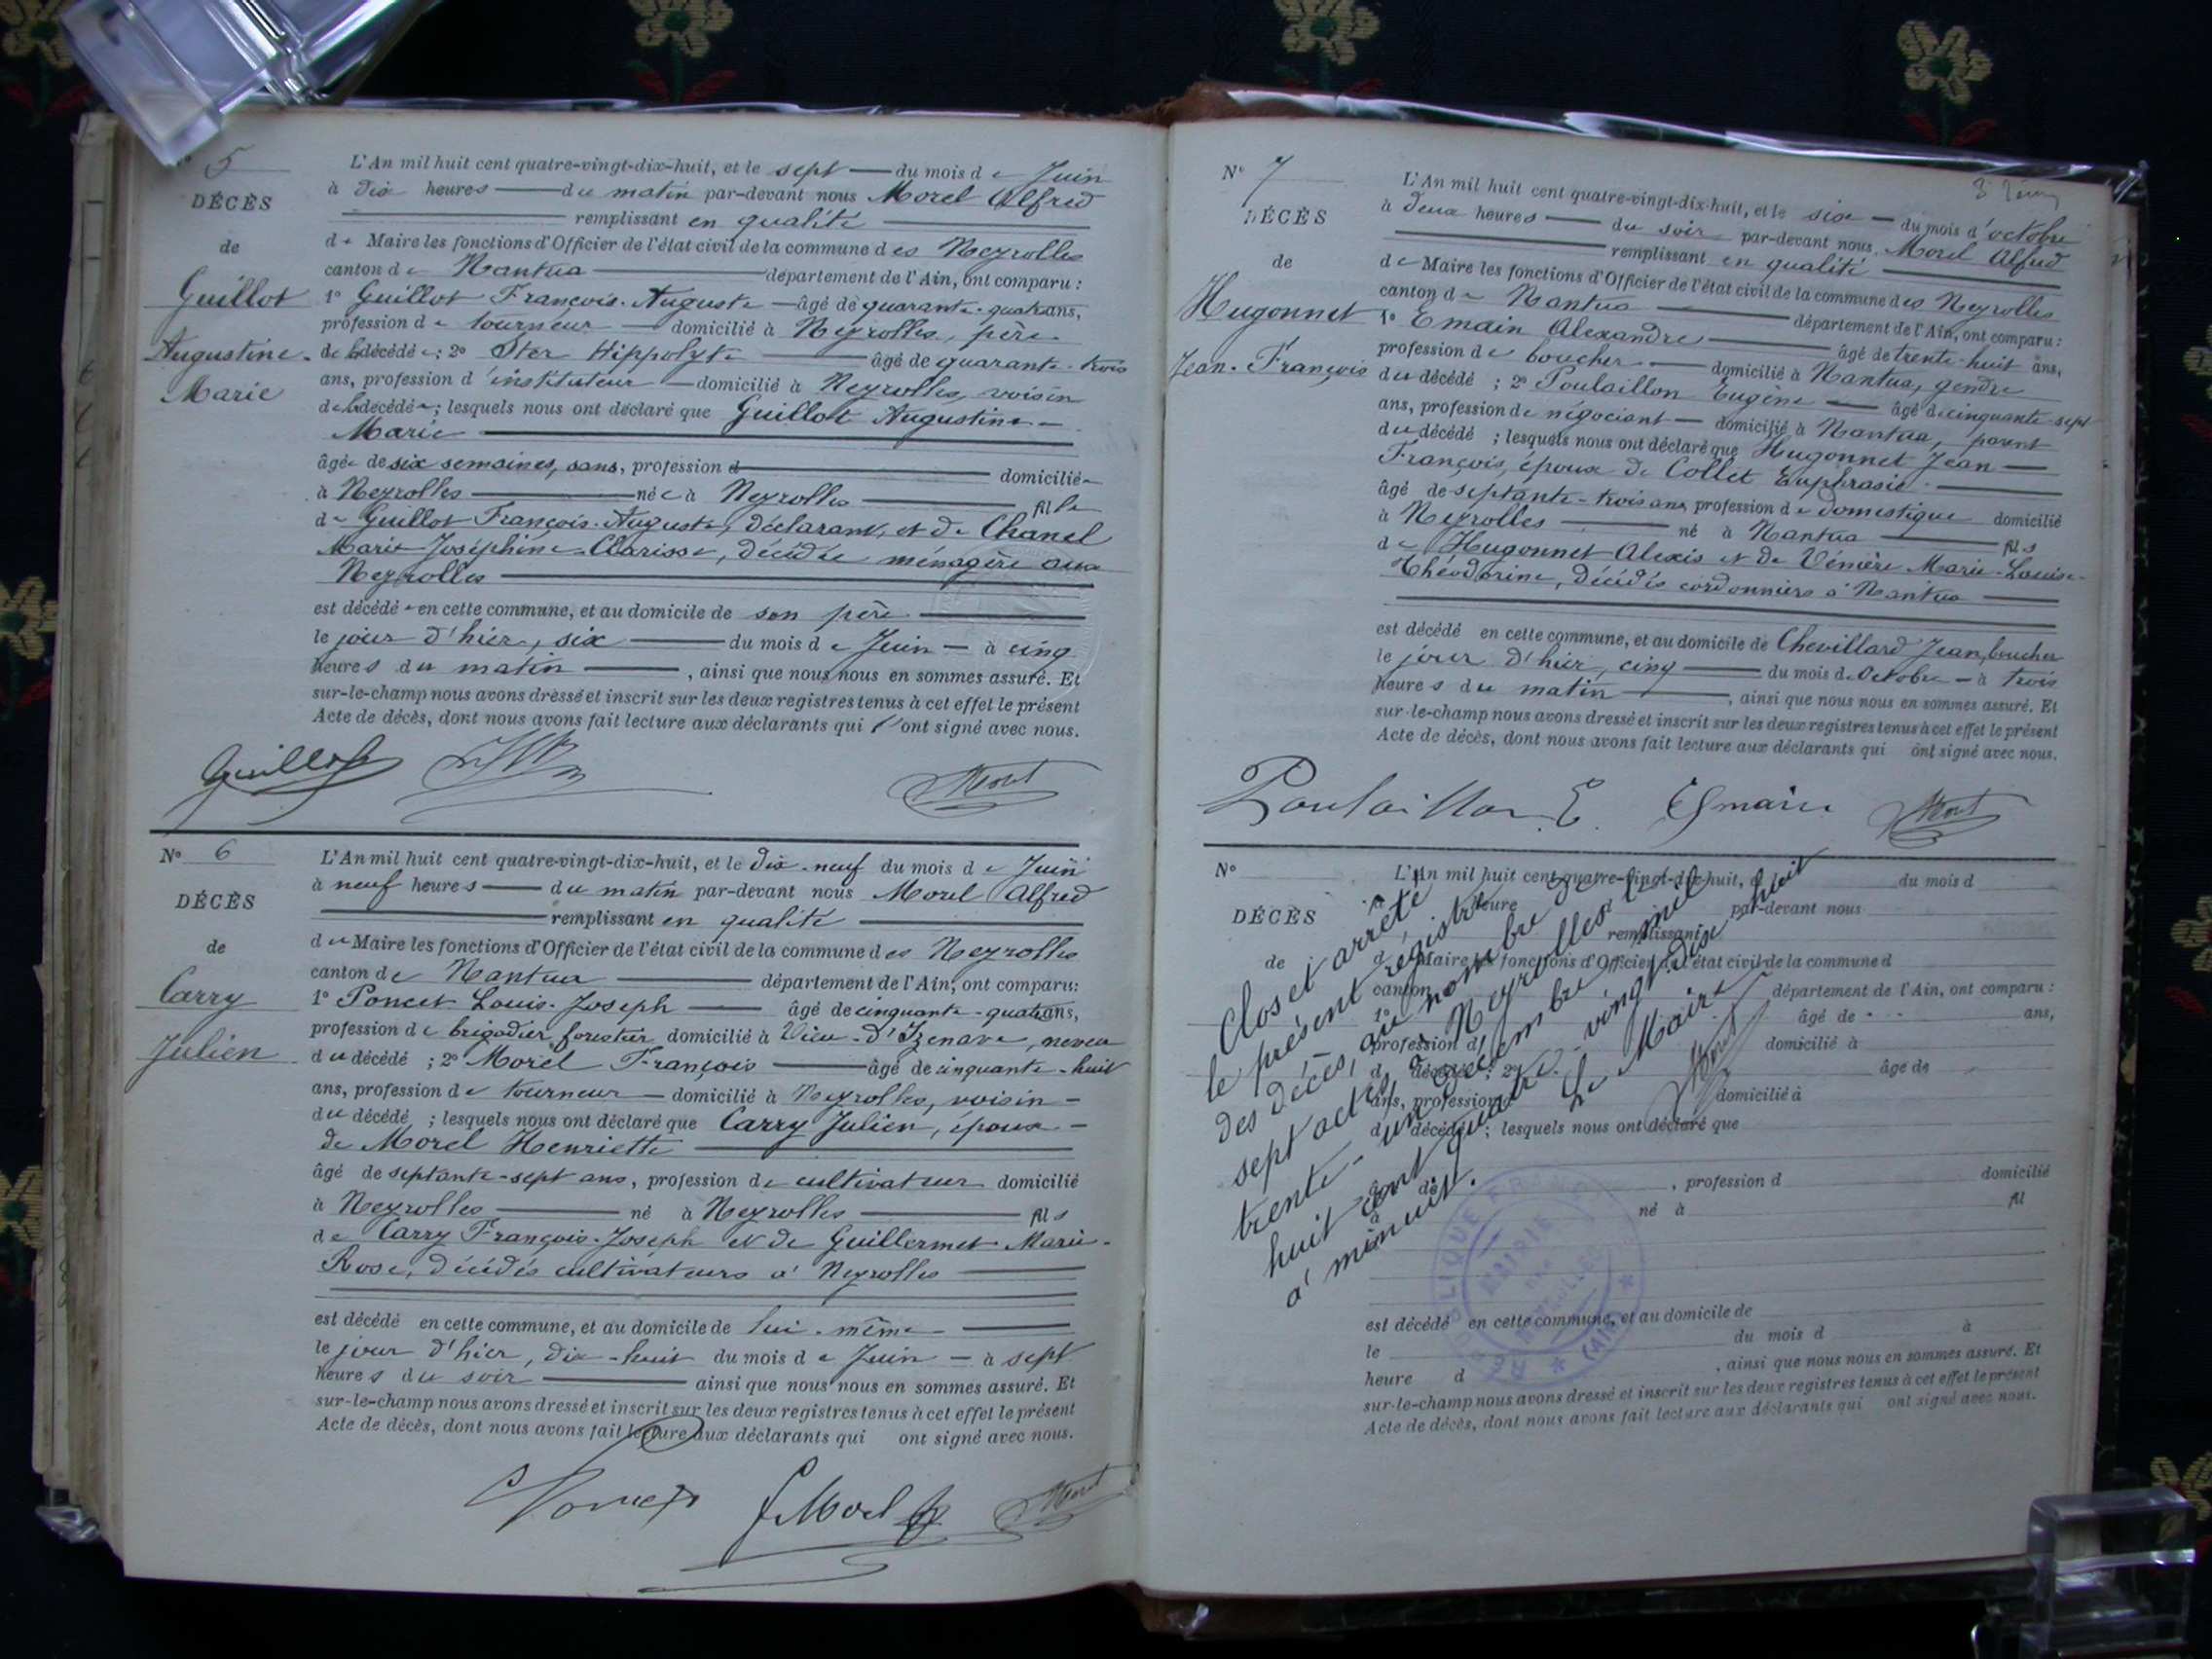 N° 5
DÉCÈS
de
Guillot
Augustine-
Marie
L'An mil huit cent quatre-vingt-dix-huit, et le sept — du mois de Juin
à dix heures — du matin par-devant nous Morel Alfred
remplissant en qualité
de Maire les fonctions d'Officier de l'état civil de la commune des Neyrolles
canton de Nantua — département de l'Ain, ont comparu :
1° Guillot François-Auguste — âgé de quarante-quatre ans,
profession de tourneur — domicilié à Neyrolles, père
de la décédée ; 2° Ster Hippolyte — âgé de quarante-trois
ans, profession d'instituteur — domicilié à Neyrolles, voisin
de la décédée ; lesquels nous ont déclaré que Guillot Augustine-
Marie
âgée de six semaines, sans, profession d — domiciliée
à Neyrolles — née à Neyrolles — fille
de Guillot François-Auguste, déclarant, et de Chanel
Marie-Joséphine-Clarisse, décédée ménagère aux
Neyrolles
est décédée en cette commune, et au domicile de son père
le jour d'hier, six — du mois de Juin — à cinq
heures du matin — , ainsi que nous nous en sommes assuré. Et
sur-le-champ nous avons dressé et inscrit sur les deux registres tenus à cet effet le présent
Acte de décès, dont nous avons fait lecture aux déclarants qui l'ont signé avec nous.
Guillot Morel
N° 6
DÉCÈS
de
Carry
Julien
L'An mil huit cent quatre-vingt-dix-huit, et le dix-neuf du mois de Juin
à neuf heures — du matin par-devant nous Morel Alfred
remplissant en qualité
de Maire les fonctions d'Officier de l'état civil de la commune des Neyrolles
canton de Nantua — département de l'Ain, ont comparu :
1° Poncet Louis-Joseph — âgé de cinquante-quatre ans,
profession de brigadier forestier domicilié à Vieu-d'Izenave, neveu
du décédé ; 2° Morel François — âgé de cinquante-huit
ans, profession de tourneur — domicilié à Neyrolles, voisin -
du décédé ; lesquels nous ont déclaré que Carry Julien, époux -
de Morel Henriette
âgé de septante-sept ans, profession de cultivateur domicilié
à Neyrolles — né à Neyrolles — fils
de Carry François-Joseph et de Guillermet Marie-
Rose, décédés cultivateurs à Neyrolles
est décédé en cette commune, et au domicile de lui-même
le jour d'hier, dix-huit du mois de Juin — à sept
heures du soir — ainsi que nous nous en sommes assuré. Et
sur-le-champ nous avons dressé et inscrit sur les deux registres tenus à cet effet le présent
Acte de décès, dont nous avons fait lecture aux déclarants qui ont signé avec nous.
Poncet F. Morel Morel
N° 7
DÉCÈS
de
Hugonnet
Jean-François
L'An mil huit cent quatre-vingt-dix-huit, et le six — du mois d'octobre
à deux heures — du soir par-devant nous Morel Alfred
remplissant en qualité
de Maire les fonctions d'Officier de l'état civil de la commune des Neyrolles
canton de Nantua — département de l'Ain, ont comparu :
1° Emain Alexandre — âgé de trente-huit ans,
profession de boucher — domicilié à Nantua, gendre
du décédé ; 2° Poulaillon Eugène — âgé de cinquante-sept
ans, profession de négociant — domicilié à Nantua, parent
du décédé ; lesquels nous ont déclaré que Hugonnet Jean —
François, époux de Collet Euphrasie
âgé de septante-trois ans, profession de domestique domicilié
à Neyrolles — né à Nantua — fils
de Hugonnet Alexis et de Vénière Marie-Louise-
Théodorine, décédés cordonniers à Nantua
est décédé en cette commune, et au domicile de Chevillard Jean, boucher
le jour d'hier, cinq — du mois d'Octobre — à trois
heures du matin — , ainsi que nous nous en sommes assuré. Et
sur-le-champ nous avons dressé et inscrit sur les deux registres tenus à cet effet le présent
Acte de décès, dont nous avons fait lecture aux déclarants qui ont signé avec nous.
Poulaillon E. Esmain Morel
N°
DÉCÈS
de
L'An mil huit cent quatre-vingt-dix-huit, du mois d
à heure par-devant nous
remplissant
d Maire les fonctions d'Officier de l'état civil de la commune d
canton département de l'Ain, ont comparu :
1° âgé de ans,
profession d domicilié à
d décédé ; 2° âgé de
ans, profession d domicilié à
d décédé ; lesquels nous ont déclaré que
âgé de , profession d domicilié
à né à fil
est décédé en cette commune, et au domicile de
le du mois d à
heure d , ainsi que nous nous en sommes assuré. Et
sur-le-champ nous avons dressé et inscrit sur les deux registres tenus à cet effet le présent
Acte de décès, dont nous avons fait lecture aux déclarants qui ont signé avec nous.
Clos et arrêté
le présent registre
des décès, au nombre de
sept actes, à Neyrolles le
trente-un décembre mil
huit cent quatre-vingt-dix-huit
à minuit. Le Maire
Morel
RÉPUBLIQUE FRANÇ
MAIRIE
DES
NEYROLLES
(AIN)